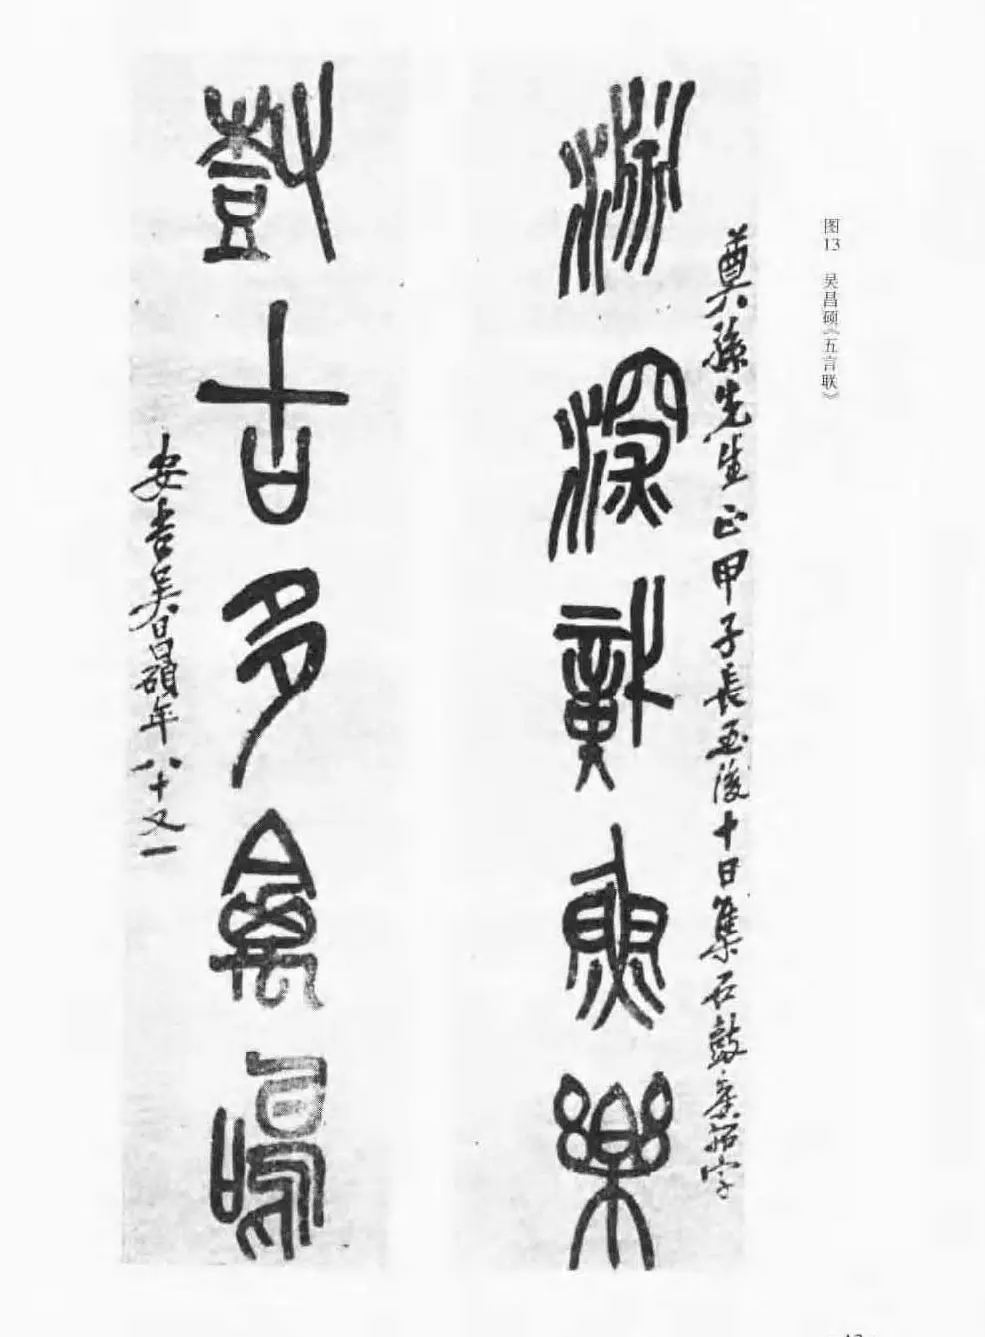 图13 吴昌硕《五言联》
奠孫先生正甲子長至後十日集石鼓字
淵深戠魚樂
尌古多禽鳴
安吉吳昌碩年八十又一